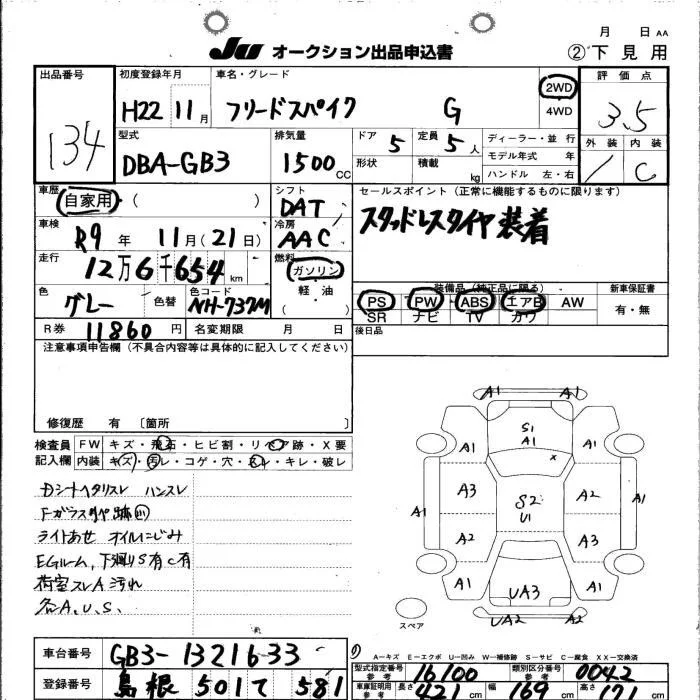 月 日 AA
JU オークション出品申込書 ②下見用
出品番号 初度登録年月 車名・グレード 評価点
134 H22 11月 フリードスパイク G 2WD 4WD 3.5
型式 排気量 ドア 定員 ディーラー・並 行 外装 内装
DBA-GB3 1500CC 5 5人 モデル年式 年 C
形状 積載 kg ハンドル 左・右
車歴 シフト セールスポイント(正常に機能するものに限ります)
自家用・( ) DAT スタッドレスタイヤ装着
車検 冷房
R9年 11月(21日) AAC
走行 燃料
12万6千654km ガソリン
軽・油
( )
色 色替 色コード 装備品(純正品に限る) 新車保証書
グレー NH-737M PS PW ABS エアB AW 有・無
SR ナビ TV カワ
R券 11860円 名変期限 月 日 後日品
注意事項申告欄(不具合内容等は具体的に記入してください)
修復歴 有 〔箇所 〕
検査員 FW キズ・飛石・ヒビ割・リペア跡・X要
記入欄 内装 キズ・汚レ・コゲ・穴・スレ・キレ・破レ
Dシートヘタリスレ ハンスレ
ライトあせ オイルにじみ
EGルーム,下廻りS有C有
荷室スレA汚れ
A1 A1
S1
A1
A1 A1
X
A3 S2 A2
U1
A1 A1
A2 A3
A1 A1
UA3
UA2 A2
スペア
A-キズ E-エクボ U-凹み W-補修跡 S-サビ C-腐食 XX-交換済
車台番号 GB3-1321633
型式指定番号 参考 16100 類別区分番号 参考 0042
登録番号 島根 501 て 581
車庫証明用 参考 長さ 421cm 幅 169cm 高さ 171cm